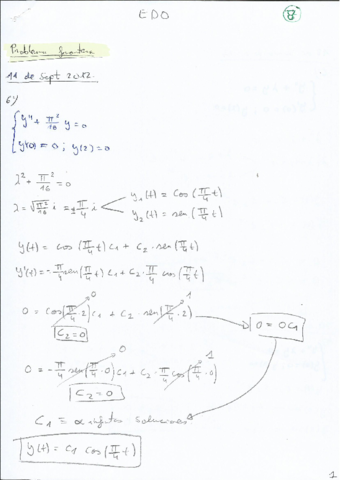 EDO
B
Problema frontera
14 de Sept 2012.
6)
y'' + π²/16 y = 0
y'(0) = 0 ; y(2) = 0
λ² + π²/16 = 0
λ = √π²/16 i = ± π/4 i
y₁(t) = cos(π/4 t)
y₂(t) = sen(π/4 t)
y(t) = cos(π/4 t) C₁ + C₂ · sen(π/4 t)
y'(t) = -π/4 sen(π/4 t) C₁ + C₂ · π/4 cos(π/4 t)
0 1
0 = cos(π/4 · 2) C₁ + C₂ sen(π/4 · 2)
C₂ = 0
0 = 0C₁
0 1
0 = -π/4 sen(π/4 · 0) C₁ + C₂ · π/4 cos(π/4 · 0)
C₂ = 0
C₁ = ∞ infinitas soluciones
y(t) = C₁ cos(π/4 t)
1